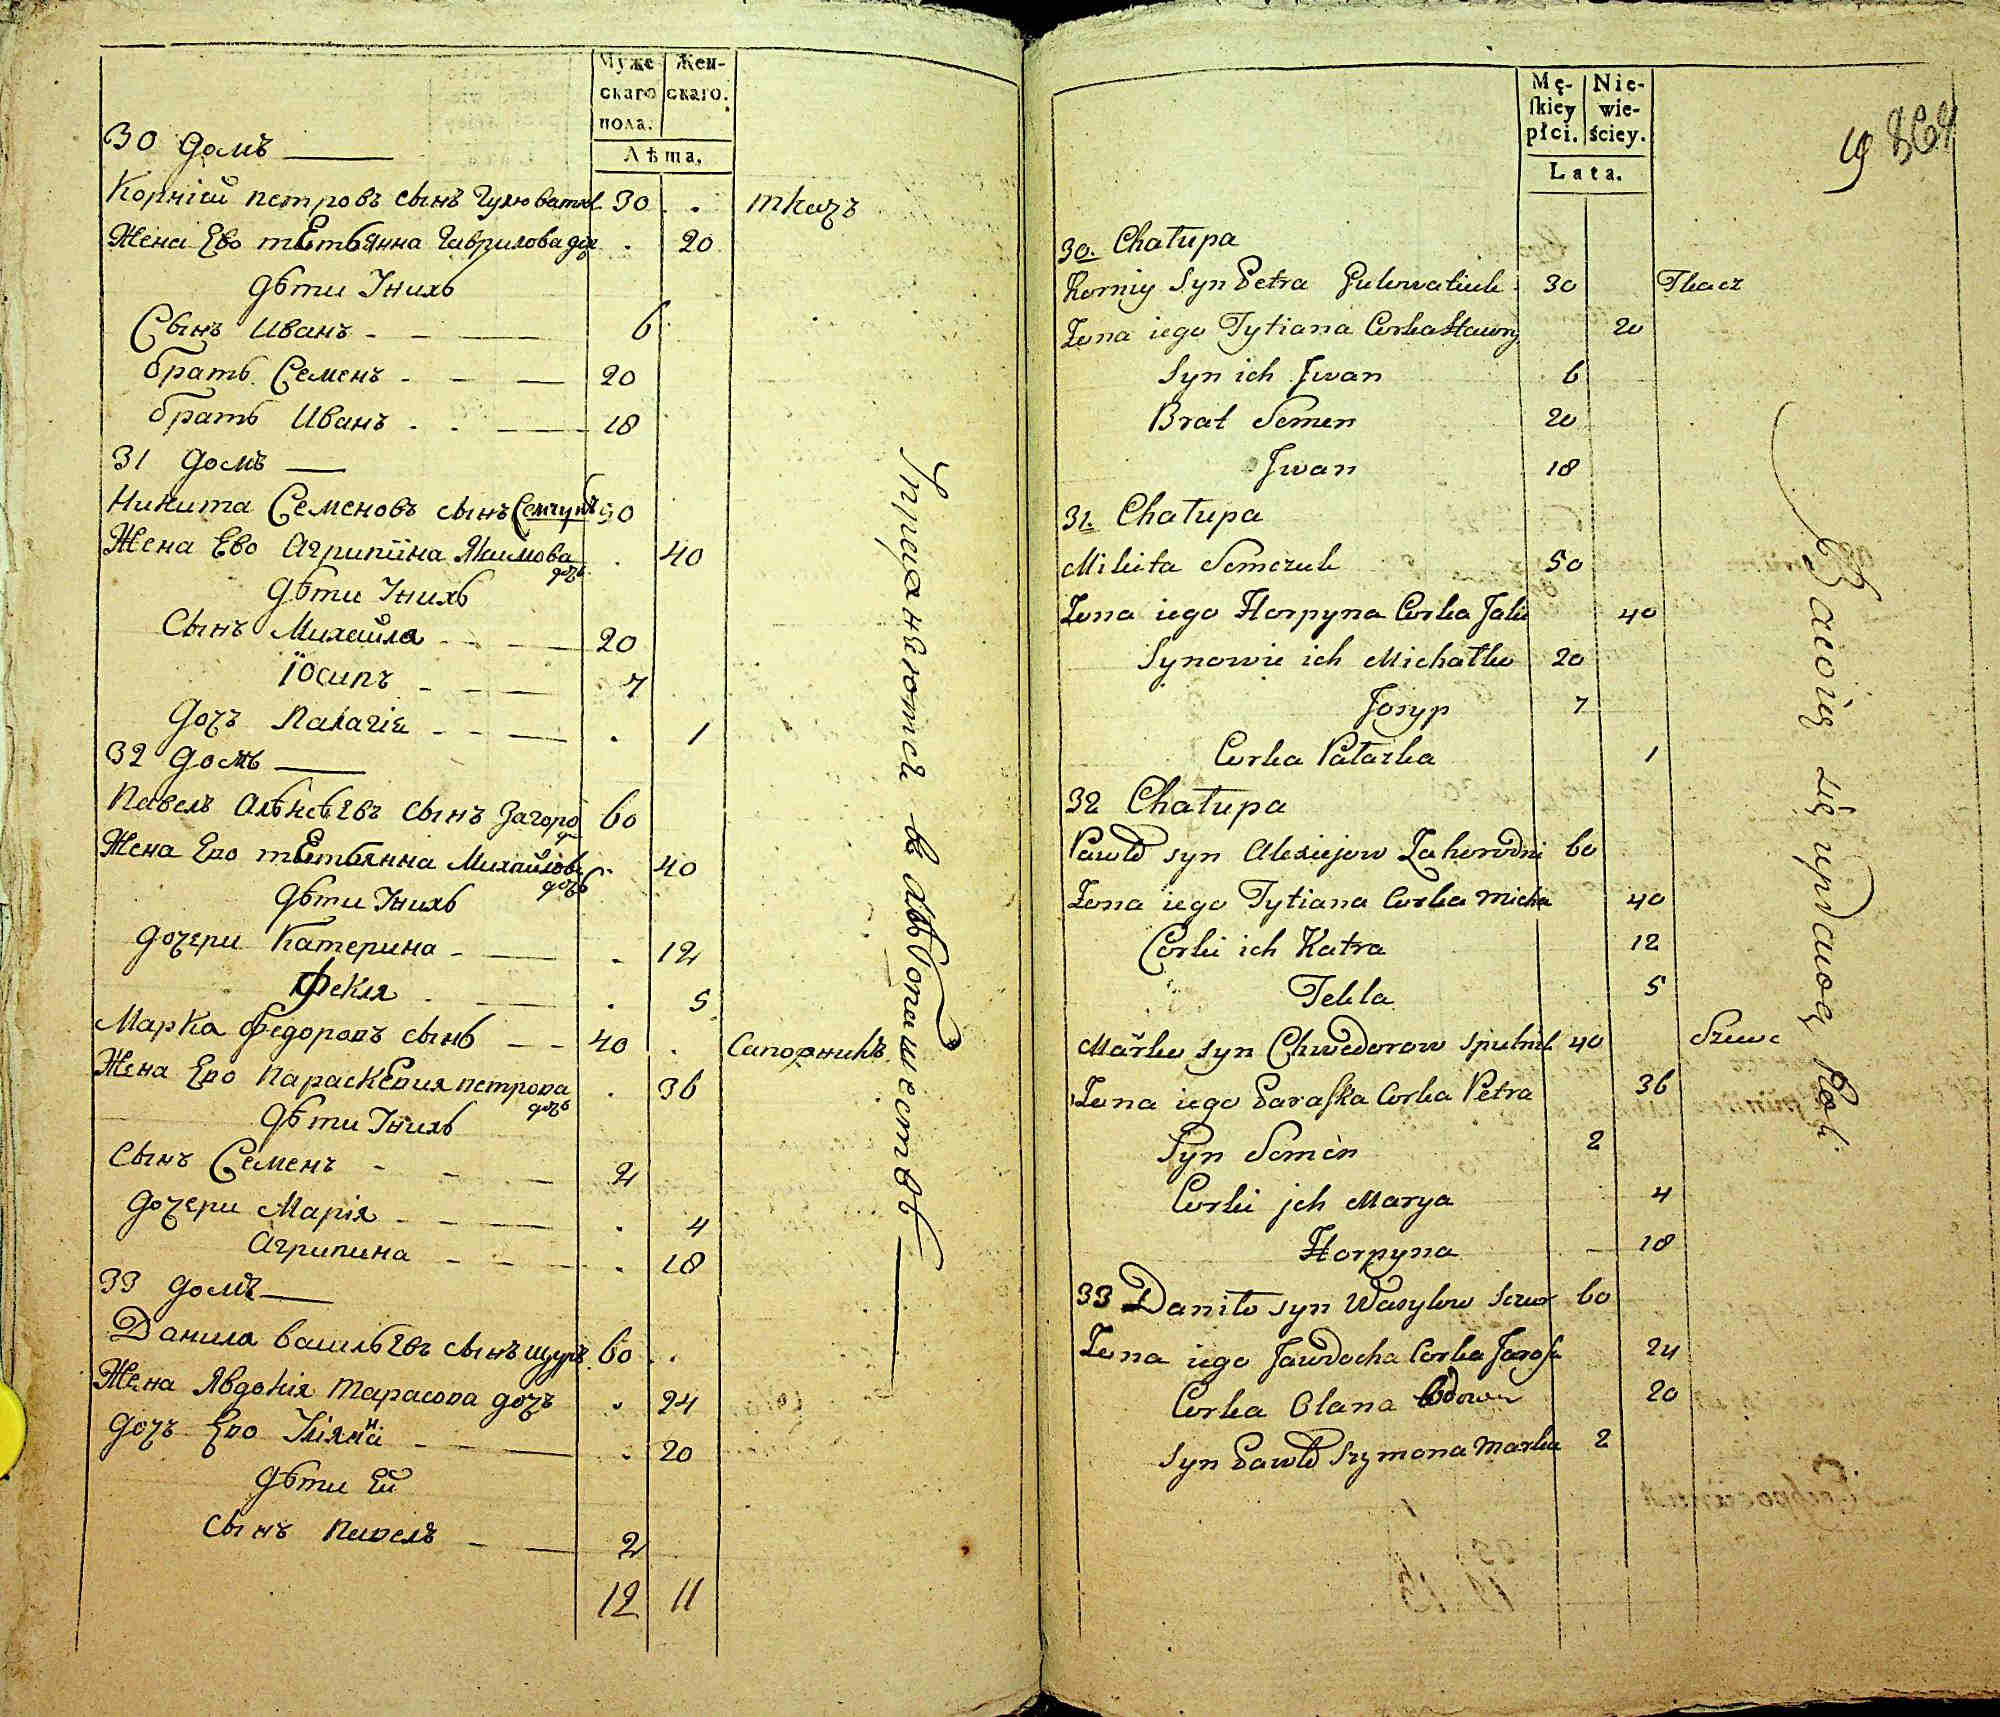 Муже
скаго
пола.
Жен-
скаго.
Лѣта.
30 домъ
Корнѣй петровъ сынъ Гуловатюк 30 ткачъ
Жена Ево тЕтьянна Гаврилова доч 20
дѣти Ѹнихъ
Сынъ Иванъ 6
братъ Семенъ 20
братъ Иванъ 18
31 домъ
Никита Семеновъ сынъ Семчукъ 50
Жена Ево Агрипина Якимова дочъ 40
дѣти Ѹнихъ
Сынъ Михайла 20
Іосипъ 7
дочъ Палагіе 1
32 домъ
Павелъ Алѣксѣевъ сынъ Загоро 60
Жена Ево тЕтьянна Михайлов дочъ 40
дѣти Ѹнихъ
дочери Катерина 12
Фекля 5
Марка Федоровъ сынъ 40 Сапожникъ
Жена Ево ПараскЕвия петрова дочъ 36
дѣти Ѹнихъ
Сынъ Семенъ 2
дочери Марія 4
Агрипина 18
33 домъ
Данила васильевъ сынъ щуръ 60
Жена Явдокія Тарасова дочъ 24
дочъ Ево 20
дѣти Ей
Сынъ Павелъ 2
12 11
Ѹпражнѧютсѧ в хлѣбопашествѣ
Mę-
skiey
płci.
Nie-
wie-
ściey.
Lata.
19 864
30. Chałupa
Korniy Syn Petra Gulowatiuk 30 Tkacz
Zona iego Tytiana Corka Hawry 20
Syn ich Jwan 6
Brat Semen 20
Jwan 18
31. Chałupa
Mikita Semczuk 50
Zona iego Horpyna Corka Jaki 40
Synowie ich Michałko 20
Josyp 7
Corka Pałazka 1
32 Chałupa
Pawło syn Alexiejow Zahorodni 60
Zona iego Tytiana Corka Micha 40
Corki ich Katra 12
Tekla 5
Marko syn Chwedorow spulnik 40 Szewc
Zona iego Paraska Corka Petra 36
Syn Semen 2
Corki jch Marya 4
Horpyna 18
33 Daniło syn Wasylow Szur 60
Zona iego Jawdocha Corka 24
Corka Olana Wdowa 20
Syn Pawło Szymona Marka 2
Bawią się uprawą Roli